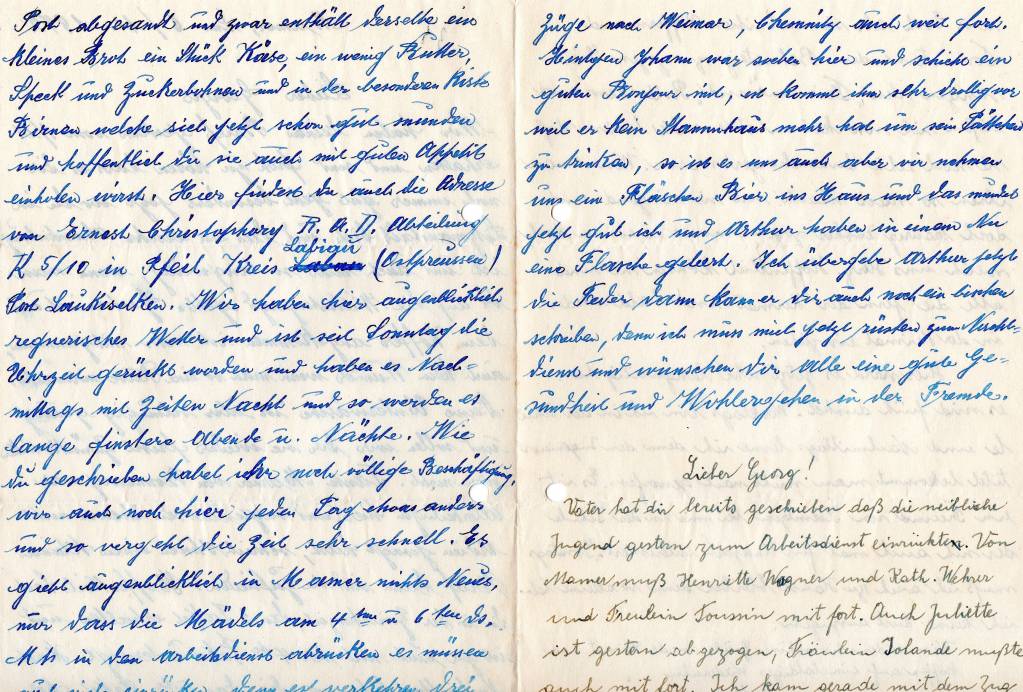 Post abgesandt und zwar enthält derselbe ein
kleines Brot ein Stück Käse, ein wenig Butter,
Speck und Zuckerbohnen und in der besonderen Kiste
Birnen welche sich jetzt schon gut munden
und hoffentlich du sie auch mit guten Appetit
einholen wirst. Hier findest du auch die Adresse
von Ernest Christophory R. A. D. Abteilung
Labiau
K 5/10 in Pfeil Kreis Laban (Ostpreussen)
Post Laukischken. Wir haben hier augenblicklich
regnerisches Wetter und ist seit Sonntag die
Uhrzeit gerückt worden und haben es Nach-
mittags mit Zeiten Nacht und so werden es
lange finstere Abende u. Nächte. Wie
du geschrieben habet ihr noch völlige Beschäftigung,
wir auch noch hier jeden Tag etwas anders
und so vergeht die Zeit sehr schnell. Es
giebt augenblicklich in Mamer nichts Neues,
nur dass die Mädels am 4ten u 6ten ds.
Mts in den Arbeitsdienst abrücken es müssen
auch viele einrücken denn es verkehren drei
Züge nach Weimar, Chemnitz auch weit fort.
Johann war soeben hier und schickt ein
guten Bonjour mit, es kommt ihm sehr drollig vor
weil er kein Stammhaus mehr hat um sein Pättchen
zu trinken, so ist es uns auch aber wir nehmen
uns ein Fläschen Bier ins Haus und das mundet
jetzt gut ich und Arthur haben in einem Nu
eine Flasche geleert. Ich übergebe Arthur jetzt
die Feder dann kann er dir auch noch ein bischen
schreiben, denn ich muss mich jetzt rüsten zum Nacht-
dienst und wünschen dir Alle eine gute Ge-
sundheit und Wohlergehen in der Fremde.
Lieber Georg!
Vater hat dir bereits geschrieben daß die weibliche
Jugend gestern zum Arbeitsdienst einrückten. Von
Mamer muß Henriette Wagner und Kath. Wehrer
und Freulein Toussin mit fort. Auch Juliette
ist gestern abgezogen, Fräulein Jolande mußte
auch mit fort. Ich kam gerade mit dem Zug